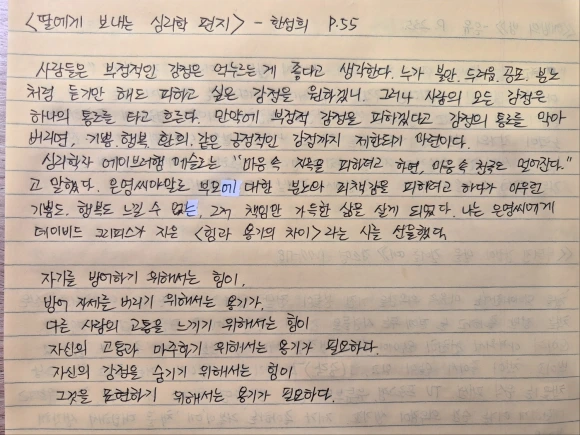 <딸에게 보내는 심리학 편지> - 한성희 P.55
사람들은 부정적인 감정은 억누르는게 좋다고 생각한다. 누가 불안, 두려움, 공포, 분노
처럼 듣기만 해도 피하고 싶은 감정을 원하겠니. 그러나 사람의 모든 감정은
하나의 통로를 타고 흐른다. 만약에 부정적 감정을 피하겠다고 감정의 통로를 막아
버리면, 기쁨, 행복, 환희 같은 긍정적인 감정까지 제한되기 마련이다.
심리학자 에이브러햄 매슬로는 "마음속 지옥을 피하려고 하면, 마음속 천국도 멀어진다."
고 말했다. 은영씨야말로 부모에 대한 분노와 죄책감을 피하려고 하다가 아무런
기쁨도, 행복도 느낄 수 없는, 그저 책임만 가득한 삶을 살게 되었다. 나는 은영씨에게
데이비드 그리피스가 지은 <힘과 용기의 차이>라는 시를 선물했다.
자기를 방어하기 위해서는 힘이,
방어 자세를 버리기 위해서는 용기가,
다른 사람의 고통을 느끼기 위해서는 힘이
자신의 고통과 마주하기 위해서는 용기가 필요하다.
자신의 감정을 숨기기 위해서는 힘이
그것을 표현하기 위해서는 용기가 필요하다.